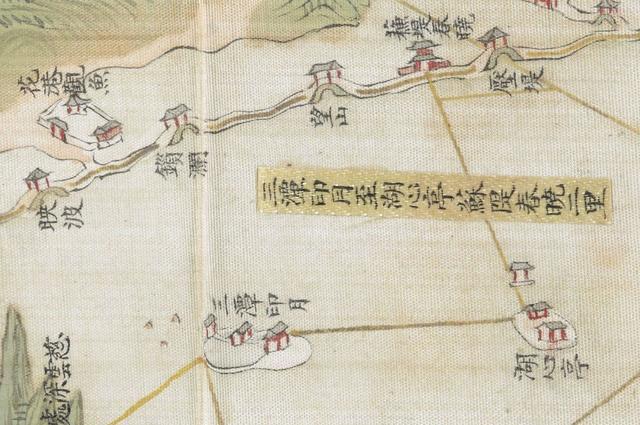 蘇堤春曉
壓堤
花港觀魚
望山
鎖瀾
映波
三潭印月至湖心亭蘇隄春曉二里
三潭印月
湖心亭
慈雲深處